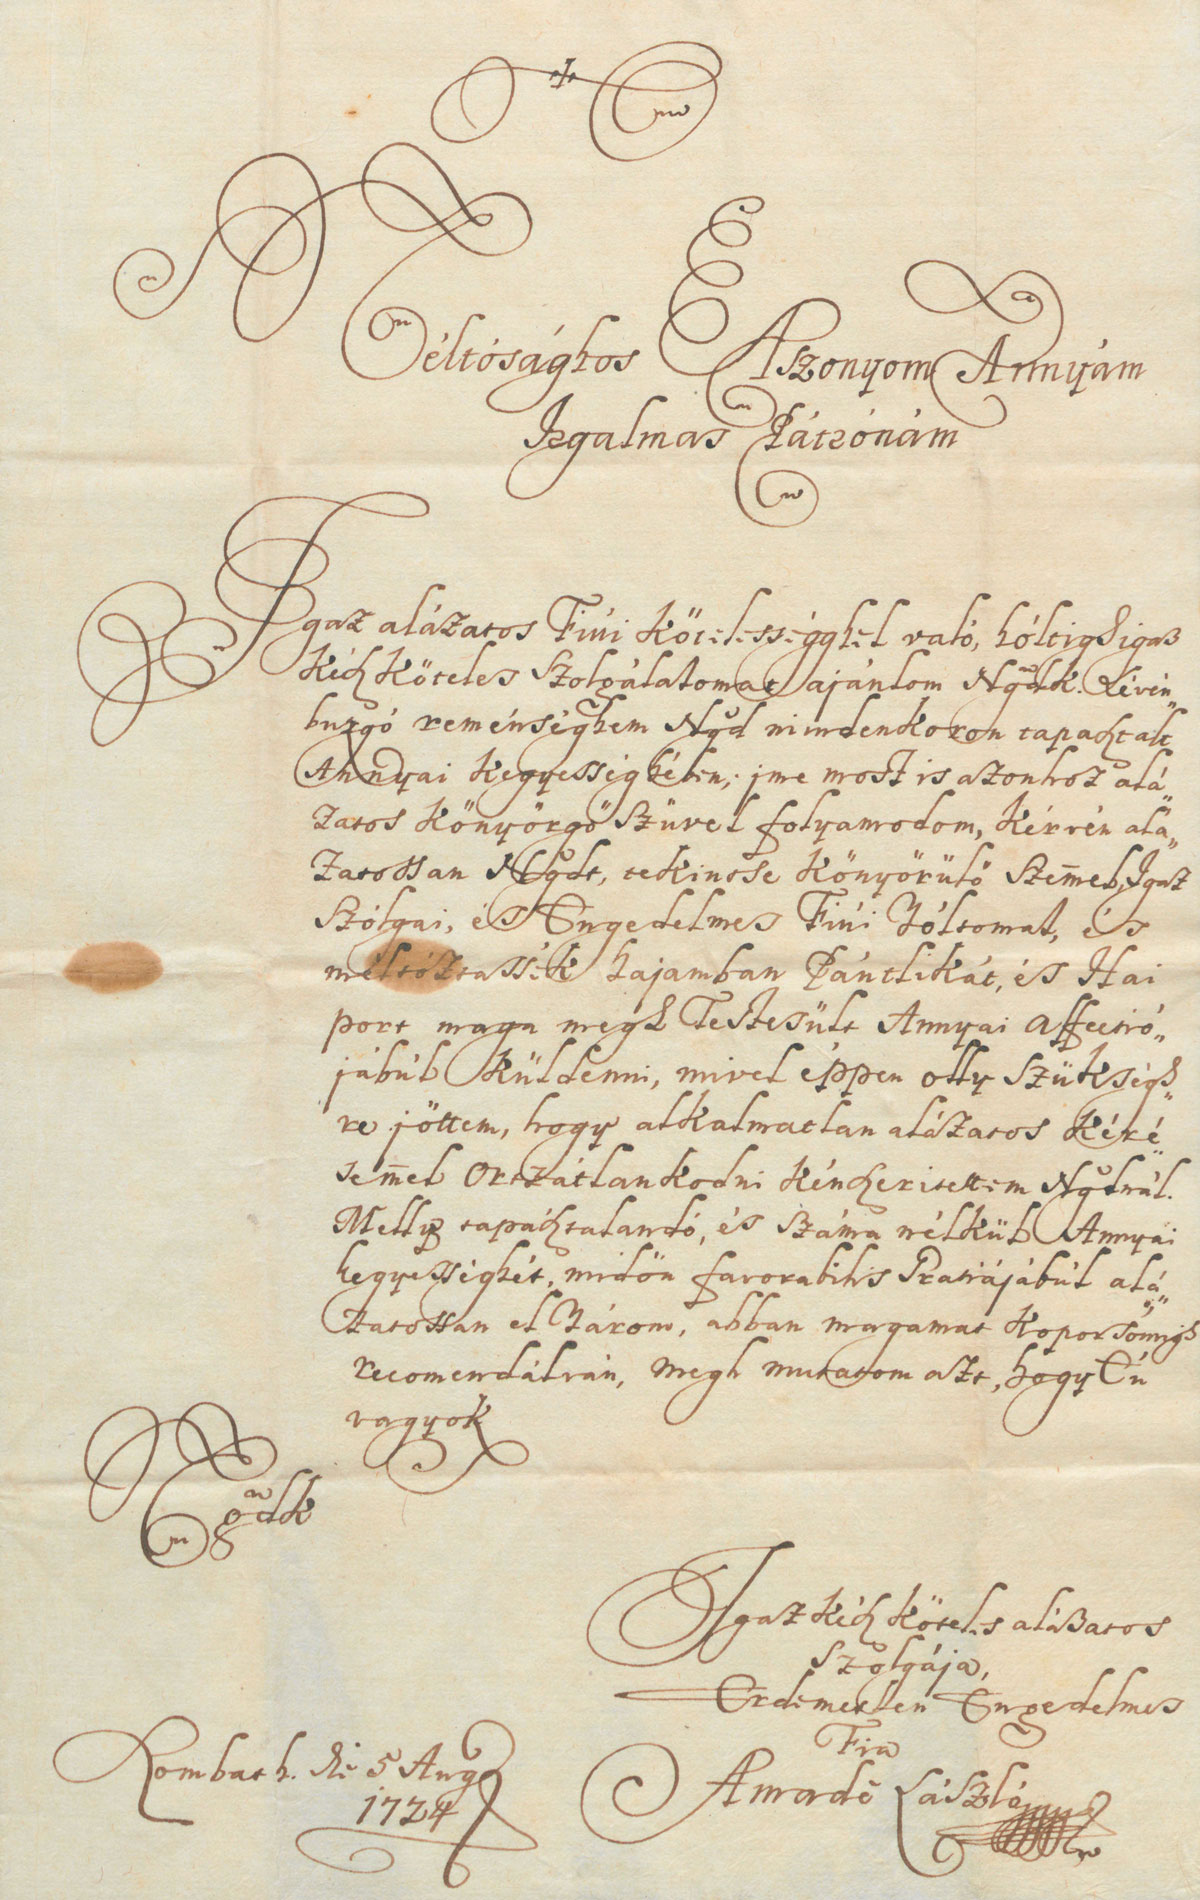 Méltósághos Aszonyom Annyám
Irgalmas Pátrónám
Igaz alázatos Fiúi Kötelességghel való, hóltigh igaß
Kécz Köteles Szolgálatomat ajánlom Ngdk. Lévén
buzgó reménséghem Ngd mindenkoron tapachtalt
Annyai Kegyességhében, jme most is azonhoz alá„
zatos Könyörgő Szüvel folyamodom, Kérvén alá„
zatossan Ngdt, tekintse Könyörülő Szem̄el, Igaz
Szólgai, és Engedelmes Fiúi Vóltomat, és
méltóztassék hajamban Pántlikát, és Hai
port maga megh Testesült Annyai Affectió„
jábúl Küldenni, mivel éppen olly Szükségh„
re jöttem, hogy alkalmatlan alázatos Kéré„
sem̄el Orczátlankodni Kénczerítettem Ngdnál.
Melly tapáchtalandó, és Száma nélkül Annyai
kegyességhét, midőn favorabilis Gratiájábúl alá„
zatossan el Várom, abban magamat Koporsómigh
recomendálván, megh mutatom azt, hogy Én
vagyok
Ngdk
Igaz Kécz Köteles aláßatos
Szolgája,
Érdemetlen Engedelmes
Fia
Amadé László
Rombach. die 5 Aug
1724